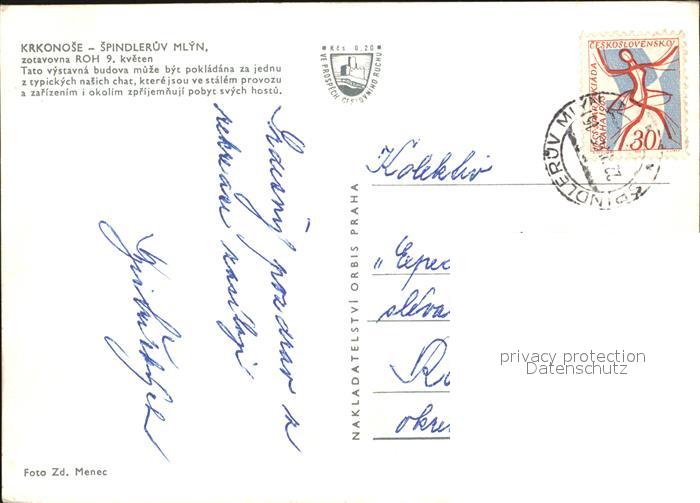 KRKONOŠE – ŠPINDLERŮV MLÝN,
zotavovna ROH 9. květen
Tato výstavná budova může být pokládána za jednu
z typických našich chat, které jsou ve stálém provozu
a zařízením i okolím zpříjemňují pobyt svých hostů.
Kčs 0,20
VE PROSPĚCH CESTOVNÍHO RUCHU
ČESKOSLOVENSKO
PRAHA 1965
30h
ŠPINDLERŮV MLÝN
Srdečný pozdrav z
rekreace zasílají
Kolektiv
"Expec
sléva
okre
NAKLADATELSTVÍ ORBIS PRAHA
privacy protection
Datenschutz
Foto Zd. Menec